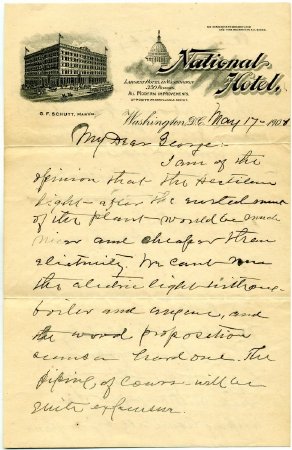 National
Hotel,
LARGEST HOTEL IN WASHINGTON
350 ROOMS.
ALL MODERN IMPROVEMENTS.
G. F. SCHUTT, MANGR.
Washington, D.C. May 17- 190
My Dear George-
I am of the
opinion that the
light - after the
of the plant - would be much
nicer and cheaper than
electricity. We cant run
the electric light without
boiler and engine, and
the wood proposition
seems a hard one. The
piping, of course will be
quite expensive.